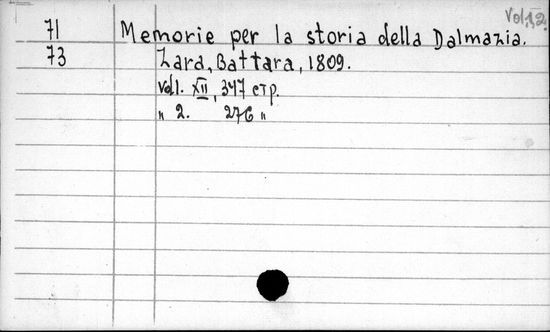 Vol.1,2.
71 Memorie per la storia della Dalmazia.
73 Zara, Battara, 1809.
Vol 1. XII, 347 стр.
" 2. 276 "